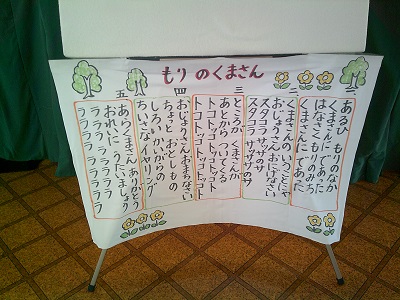 もりのくまさん
一
あるひ もりのなか
くまさんに であった
はなさくもりのみち
くまさんに であった
二
くまさんの いうことにゃ
おじょうさん おにげなさい
スタコラ サッサッサのサ
スタコラ サッサッサのサ
三
ところが くまさんが
あとから ついてくる
トコトコ トッコトッコト
トコトコ トッコトッコト
四
おじょうさん おまちなさい
ちょっと おとしもの
しろい かいがらの
ちいさな イヤリング
五
あら くまさん ありがとう
おれいに うたいましょう
ラララ ララララ
ラララ ララララ